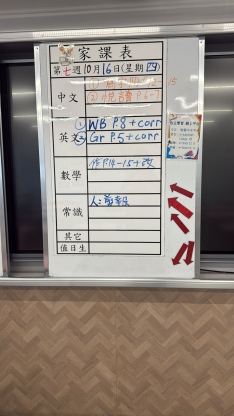 家課表
第七週10月16日(星期四)
中文
(2)悅讀P.6-7
英文
① WB P.8 + corr
② Gr P.5 + corr
數學
作P.14-15+改
常識
人:剪報
其它
值日生